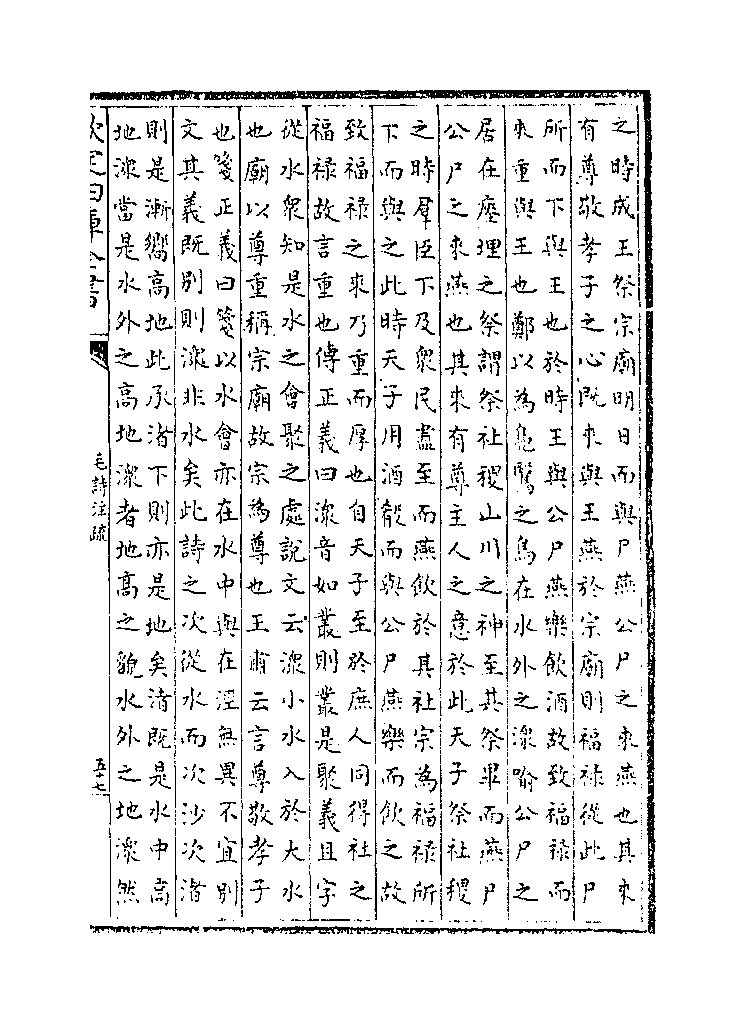 之時成王祭宗廟明日而與尸燕公尸之來燕也其來
有尊敬孝子之心既來與王燕於宗廟則福祿從此尸
所而下與王也於時王與公尸燕樂飲酒故致福祿而
來重與王也鄭以為鳧鷖之鳥在水外之潨喻公尸之
居在壅埋之祭謂祭社稷山川之神至其祭畢而燕尸
公尸之來燕也其來有尊主人之意於此天子祭社稷
之時羣臣下及衆民盡至而燕飲於其社宗為福祿所
下而與之此時天子用酒殽而與公尸燕樂而飲之故
致福祿之來乃重而厚也自天子至於庶人同得社之
福祿故言重也傳正義曰潨音如叢則叢是聚義且字
從水衆知是水之會聚之處説文云潨小水入於大水
也廟以尊重稱宗廟故宗為尊也王肅云言尊敬孝子
也箋正義曰箋以水會亦在水中與在涇無異不宜別
文其義既別則潨非水矣此詩之次從水而次沙次渚
則是漸嚮高地此承渚下則亦是地矣渚既是水中高
地潨當是水外之高地潨者地高之貌水外之地潨然
欽定四庫全書
毛詩注疏
五十七